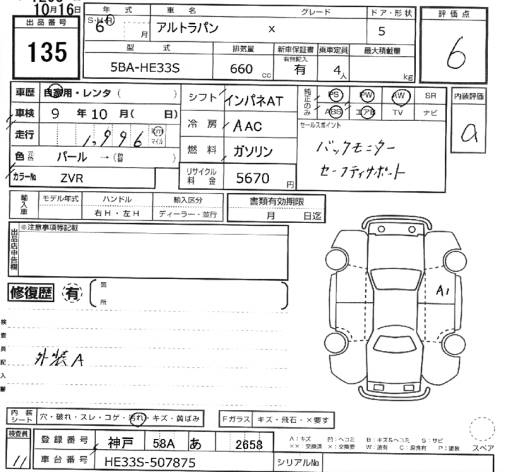 10月16日
出品番号
135
年式 車名 グレード ドア・形状
S・H・R 6 月 アルトラパン X 5
型式 排気量 新車保証書 有効記入 乗車定員 最大積載量
5BA-HE33S 660 cc 有 4人 kg
評価点
6
車歴 自家用・レンタ( )
車検 9年10月( 日)
走行 1,996 Km マイル
色 パール →( )
カラーNo ZVR
シフト インパネAT
冷房 AAC
燃料 ガソリン
リサイクル料金 5670円
純正のみ PS PW AW SR
ABS エアB TV ナビ
セールスポイント
バックモニター
セーフティサポート
内装評価
a
輸入車 モデル年式 ハンドル 輸入区分
右H・左H ディーラー・並行
書類有効期限
月 日迄
出品店申告欄
※注意事項等記載
修復歴 有 箇所
検査員記入
外装A
A1
内装シート 穴・破れ・スレ・コゲ・汚れ・キズ・黄ばみ
Fガラス キズ・飛石・×要す
検査員
11
登録番号 神戸 58A あ 2658
車台番号 HE33S-507875
シリアルNo
A:キズ
スペア